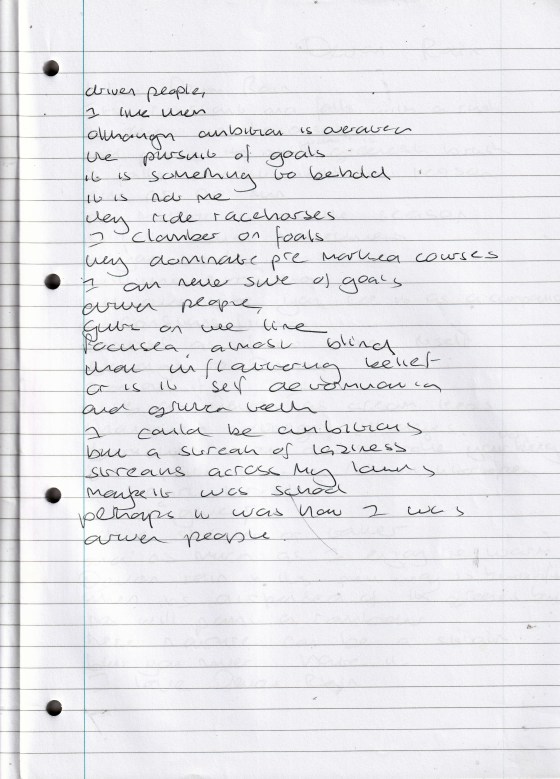 driven people,
I like them
although ambition is overrated
the pursuit of goals
it is something to behold
it is not me
they ride racehorses
I clamber on foals
they dominate pre marked courses
I am never sure of goals
driven people,
guts on the line
focused, almost blind
that unflattering belief
or is it self determining
and gritted teeth
I could be ambitious
but a streak of laziness
streaks across my
maybe it was school
perhaps it was how I was
driven people.